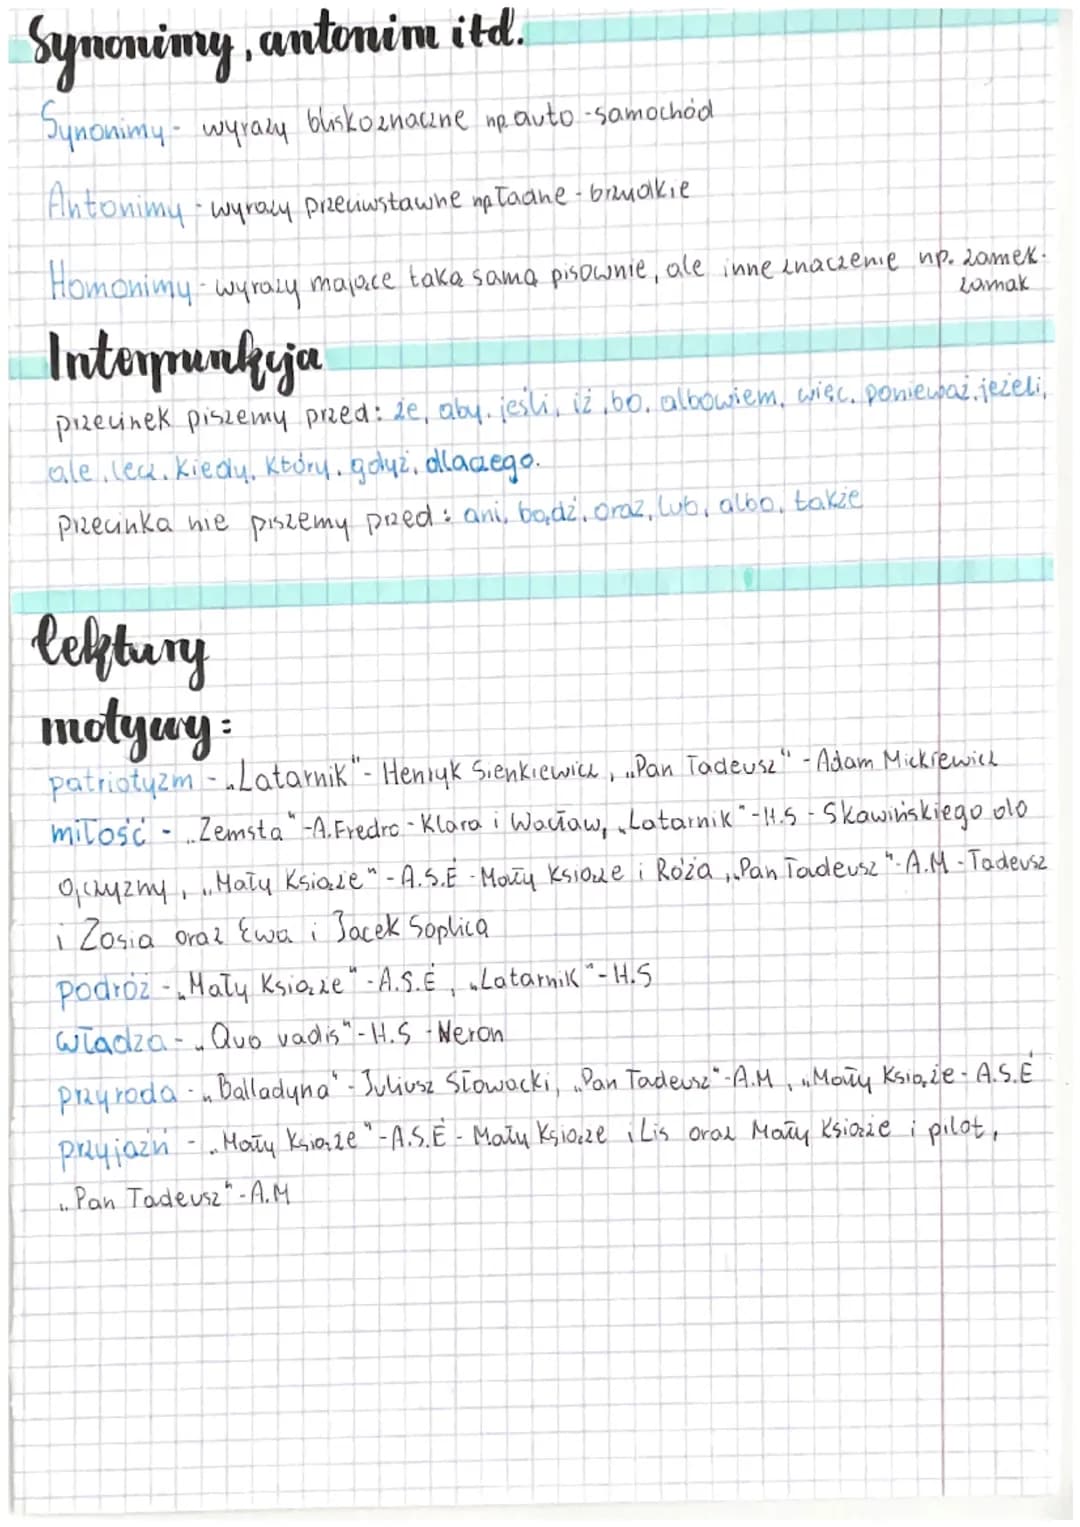 Synonimy, antonim itd.
Synonimy - wyrazy bliskoznaczne np. auto - samochód
Antonimy - wyrazy przeciwstawne np ładne - brzydkie
Homonimy - wyrazy mające taką samą pisownie, ale inne znaczenie np. zamek -
zamak
Interpunkcja
przecinek piszemy przed: że, aby, jeśli, iż, bo, albowiem, więc, ponieważ, jeżeli,
ale, lecz, kiedy, który, gdyż, dlaczego.
Przecinka nie piszemy przed: ani, bądź, oraz, lub, albo, także
lektury
motywy:
patriotyzm - „Latarnik" - Henryk Sienkiewicz, „Pan Tadeusz" - Adam Mickiewicz
miłość - „Zemsta" - A. Fredro - Klara i Wacław, „Latarnik" - H.S - Skawińskiego do
Ojczyzny, „Mały Książe" - A.S.É - Mały Książe i Róża, „Pan Tadeusz" - A.M - Tadeusz
i Zosia oraz Ewa i Jacek Soplica
podróż - „Mały Książe" - A.S.É, „Latarnik" - H.S
władza - „Quo vadis" - H.S - Neron
przyroda - „Balladyna" - Juliusz Słowacki, „Pan Tadeusz" - A.M, „Mały Książe - A.S.É
przyjaźń - „Mały Książe" - A.S.É - Mały Książe i Lis oraz Mały Książe i pilot,
„Pan Tadeusz" - A.M